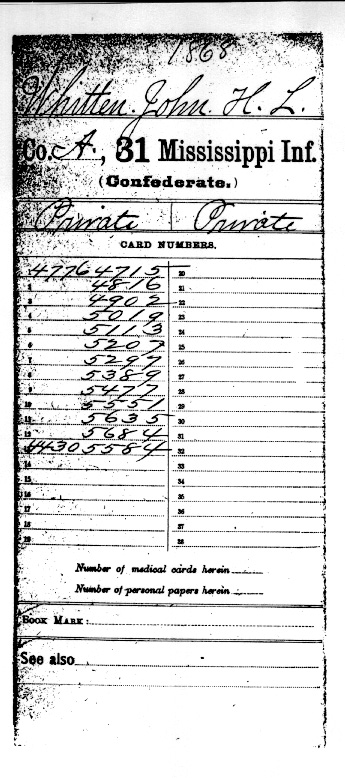 1868
Whitten. John. H. L.
Co. A., 31 Mississippi Inf.
(Confederate.)
Private Private
CARD NUMBERS.
1 47764715 20
2 4816 21
3 4902 22
4 5019 23
5 5113 24
6 5207 25
7 5297 26
8 5389 27
9 5477 28
10 5551 29
11 5635 30
12 5684 31
13 44305584 32
14 33
15 34
16 35
17 36
18 37
19 38
Number of medical cards herein
Number of personal papers herein
BOOK MARK:
See also